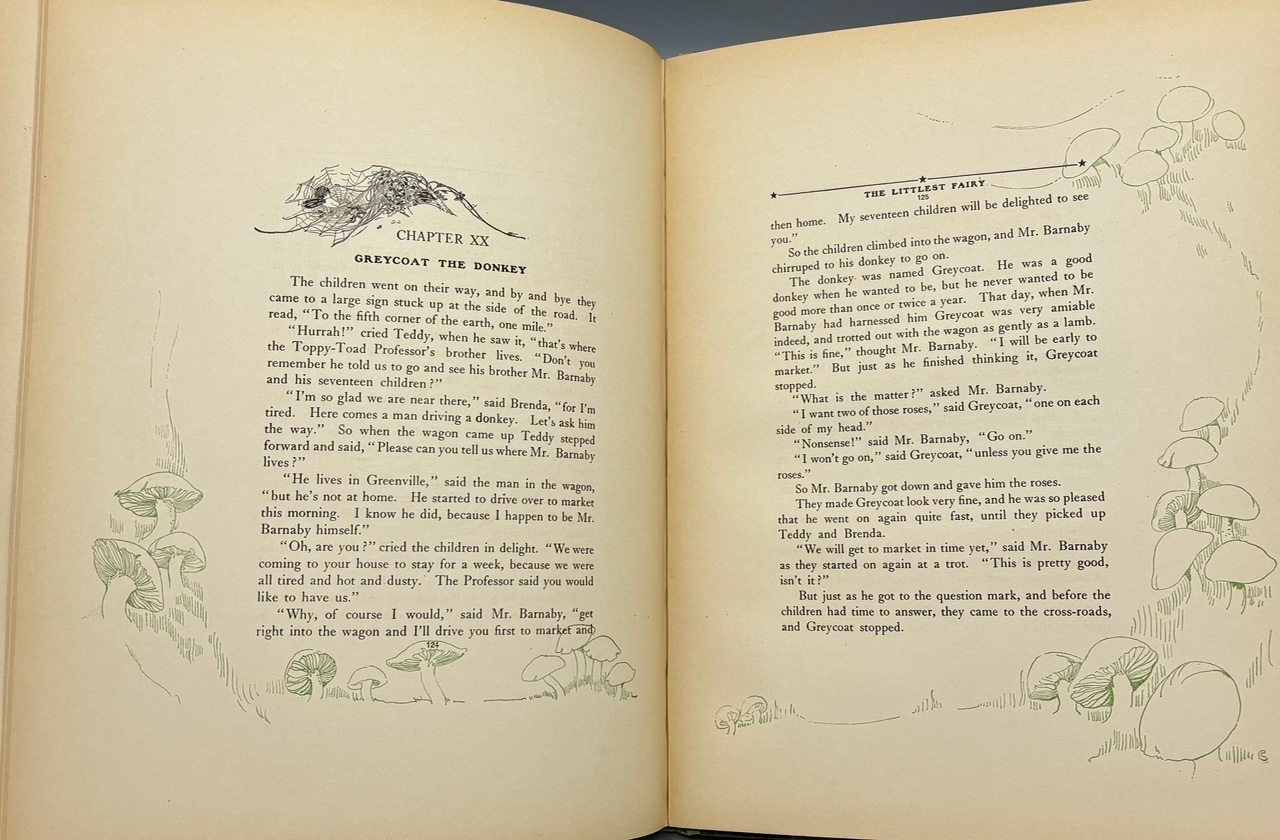 CHAPTER XX
GREYCOAT THE DONKEY
The children went on their way, and by and bye they
came to a large sign stuck up at the side of the road. It
read, “To the fifth corner of the earth, one mile.”
“Hurrah!” cried Teddy, when he saw it, “that’s where
the Toppy-Toad Professor’s brother lives. “Don’t you
remember he told us to go and see his brother Mr. Barnaby
and his seventeen children?”
“I’m so glad we are near there,” said Brenda, “for I’m
tired. Here comes a man driving a donkey. Let’s ask him
the way.” So when the wagon came up Teddy stepped
forward and said, “Please can you tell us where Mr. Barnaby
lives?”
“He lives in Greenville,” said the man in the wagon,
“but he’s not at home. He started to drive over to market
this morning. I know he did, because I happen to be Mr.
Barnaby himself.”
“Oh, are you?” cried the children in delight. “We were
coming to your house to stay for a week, because we were
all tired and hot and dusty. The Professor said you would
like to have us.”
“Why, of course I would,” said Mr. Barnaby, “get
right into the wagon and I’ll drive you first to market and
124
THE LITTLEST FAIRY
125
then home. My seventeen children will be delighted to see
you.”
So the children climbed into the wagon, and Mr. Barnaby
chirruped to his donkey to go on.
The donkey was named Greycoat. He was a good
donkey when he wanted to be, but he never wanted to be
good more than once or twice a year. That day, when Mr.
Barnaby had harnessed him Greycoat was very amiable
indeed, and trotted out with the wagon as gently as a lamb.
“This is fine,” thought Mr. Barnaby. “I will be early to
market.” But just as he finished thinking it, Greycoat
stopped.
“What is the matter?” asked Mr. Barnaby.
“I want two of those roses,” said Greycoat, “one on each
side of my head.”
“Nonsense!” said Mr. Barnaby, “Go on.”
“I won’t go on,” said Greycoat, “unless you give me the
roses.”
So Mr. Barnaby got down and gave him the roses.
They made Greycoat look very fine, and he was so pleased
that he went on again quite fast, until they picked up
Teddy and Brenda.
“We will get to market in time yet,” said Mr. Barnaby
as they started on again at a trot. “This is pretty good,
isn’t it?”
But just as he got to the question mark, and before the
children had time to answer, they came to the cross-roads,
and Greycoat stopped.